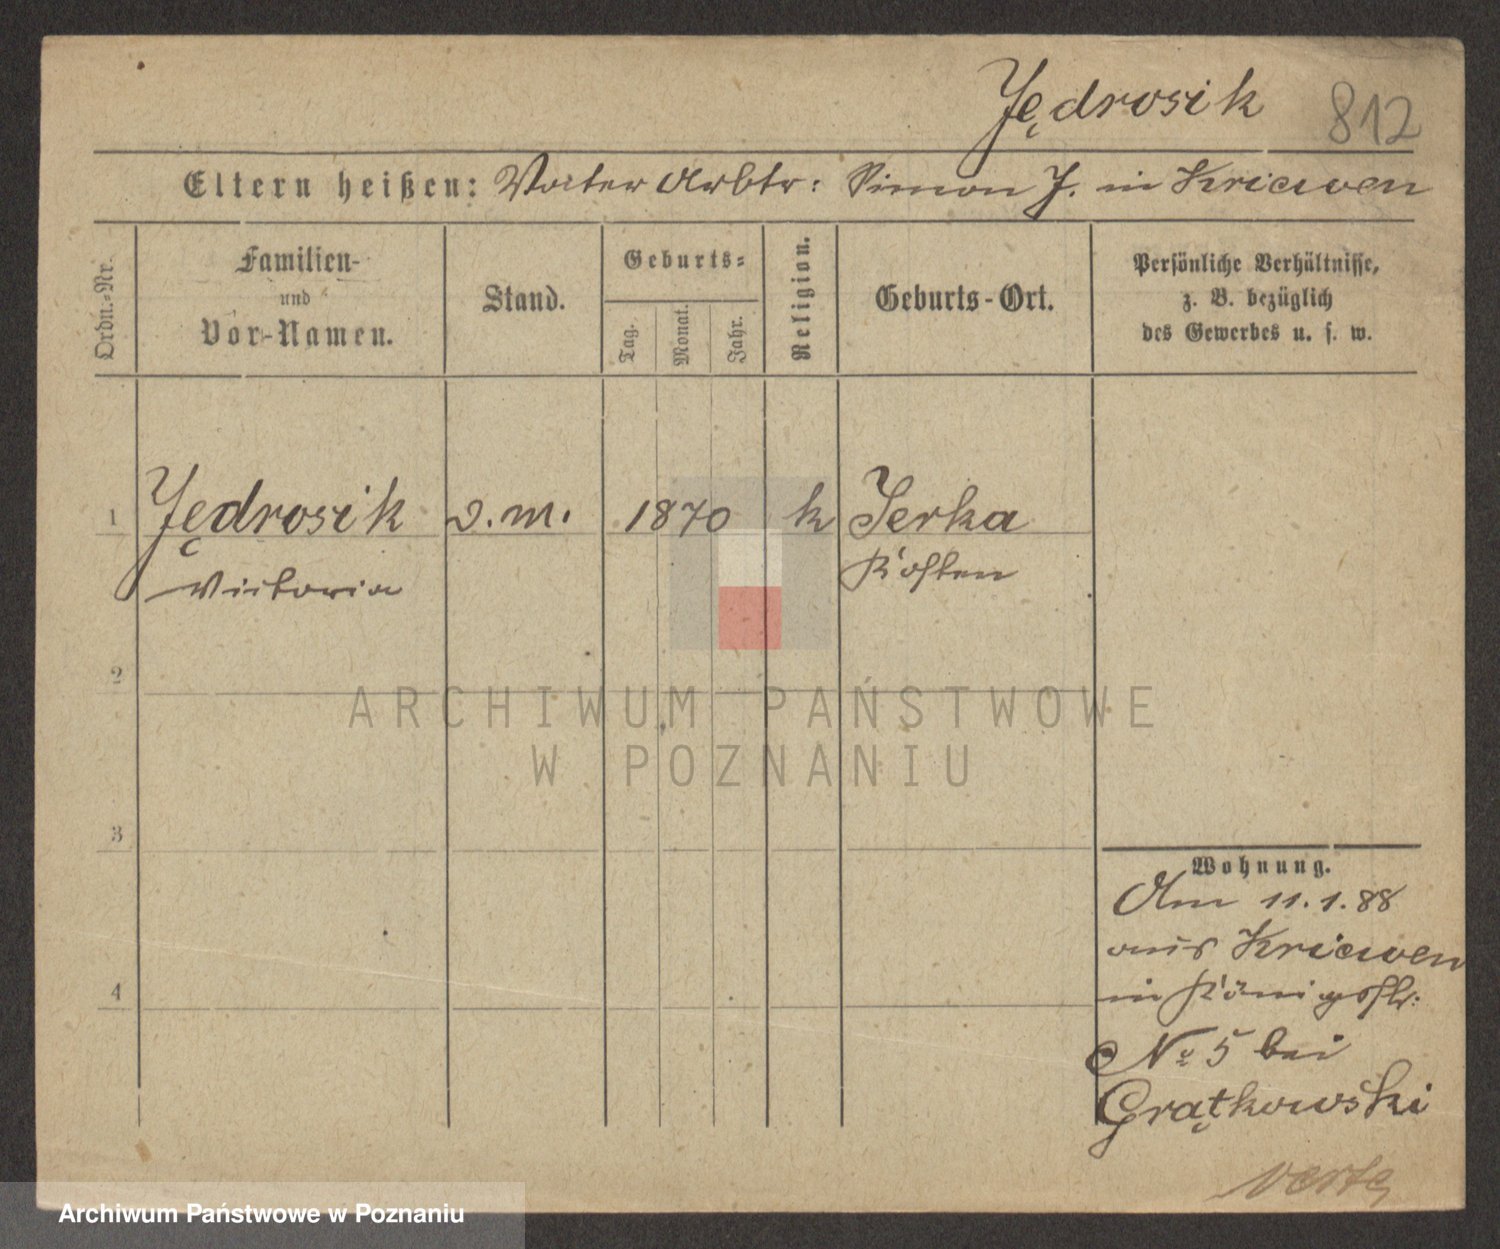 Jędrosik 812
Eltern heißen: Vater Arbtr: Simon J. in Kriewen
Ordn.-Nr.
Familien-
und
Vor-Namen.
Stand.
Geburts-
Tag.
Monat.
Jahr.
Religion.
Geburts-Ort.
Persönliche Verhältnisse,
z. B. bezüglich
des Gewerbes u. s. w.
1 Jędrosik D.M. 1870 k Jerka
Victoria Kosten
2
3
4
Wohnung.
Am 11.1.88
aus Kriewen
in Königsstr:
No 5 bei
Grątkowski
verte
ARCHIWUM PAŃSTWOWE
W POZNANIU
Archiwum Państwowe w Poznaniu